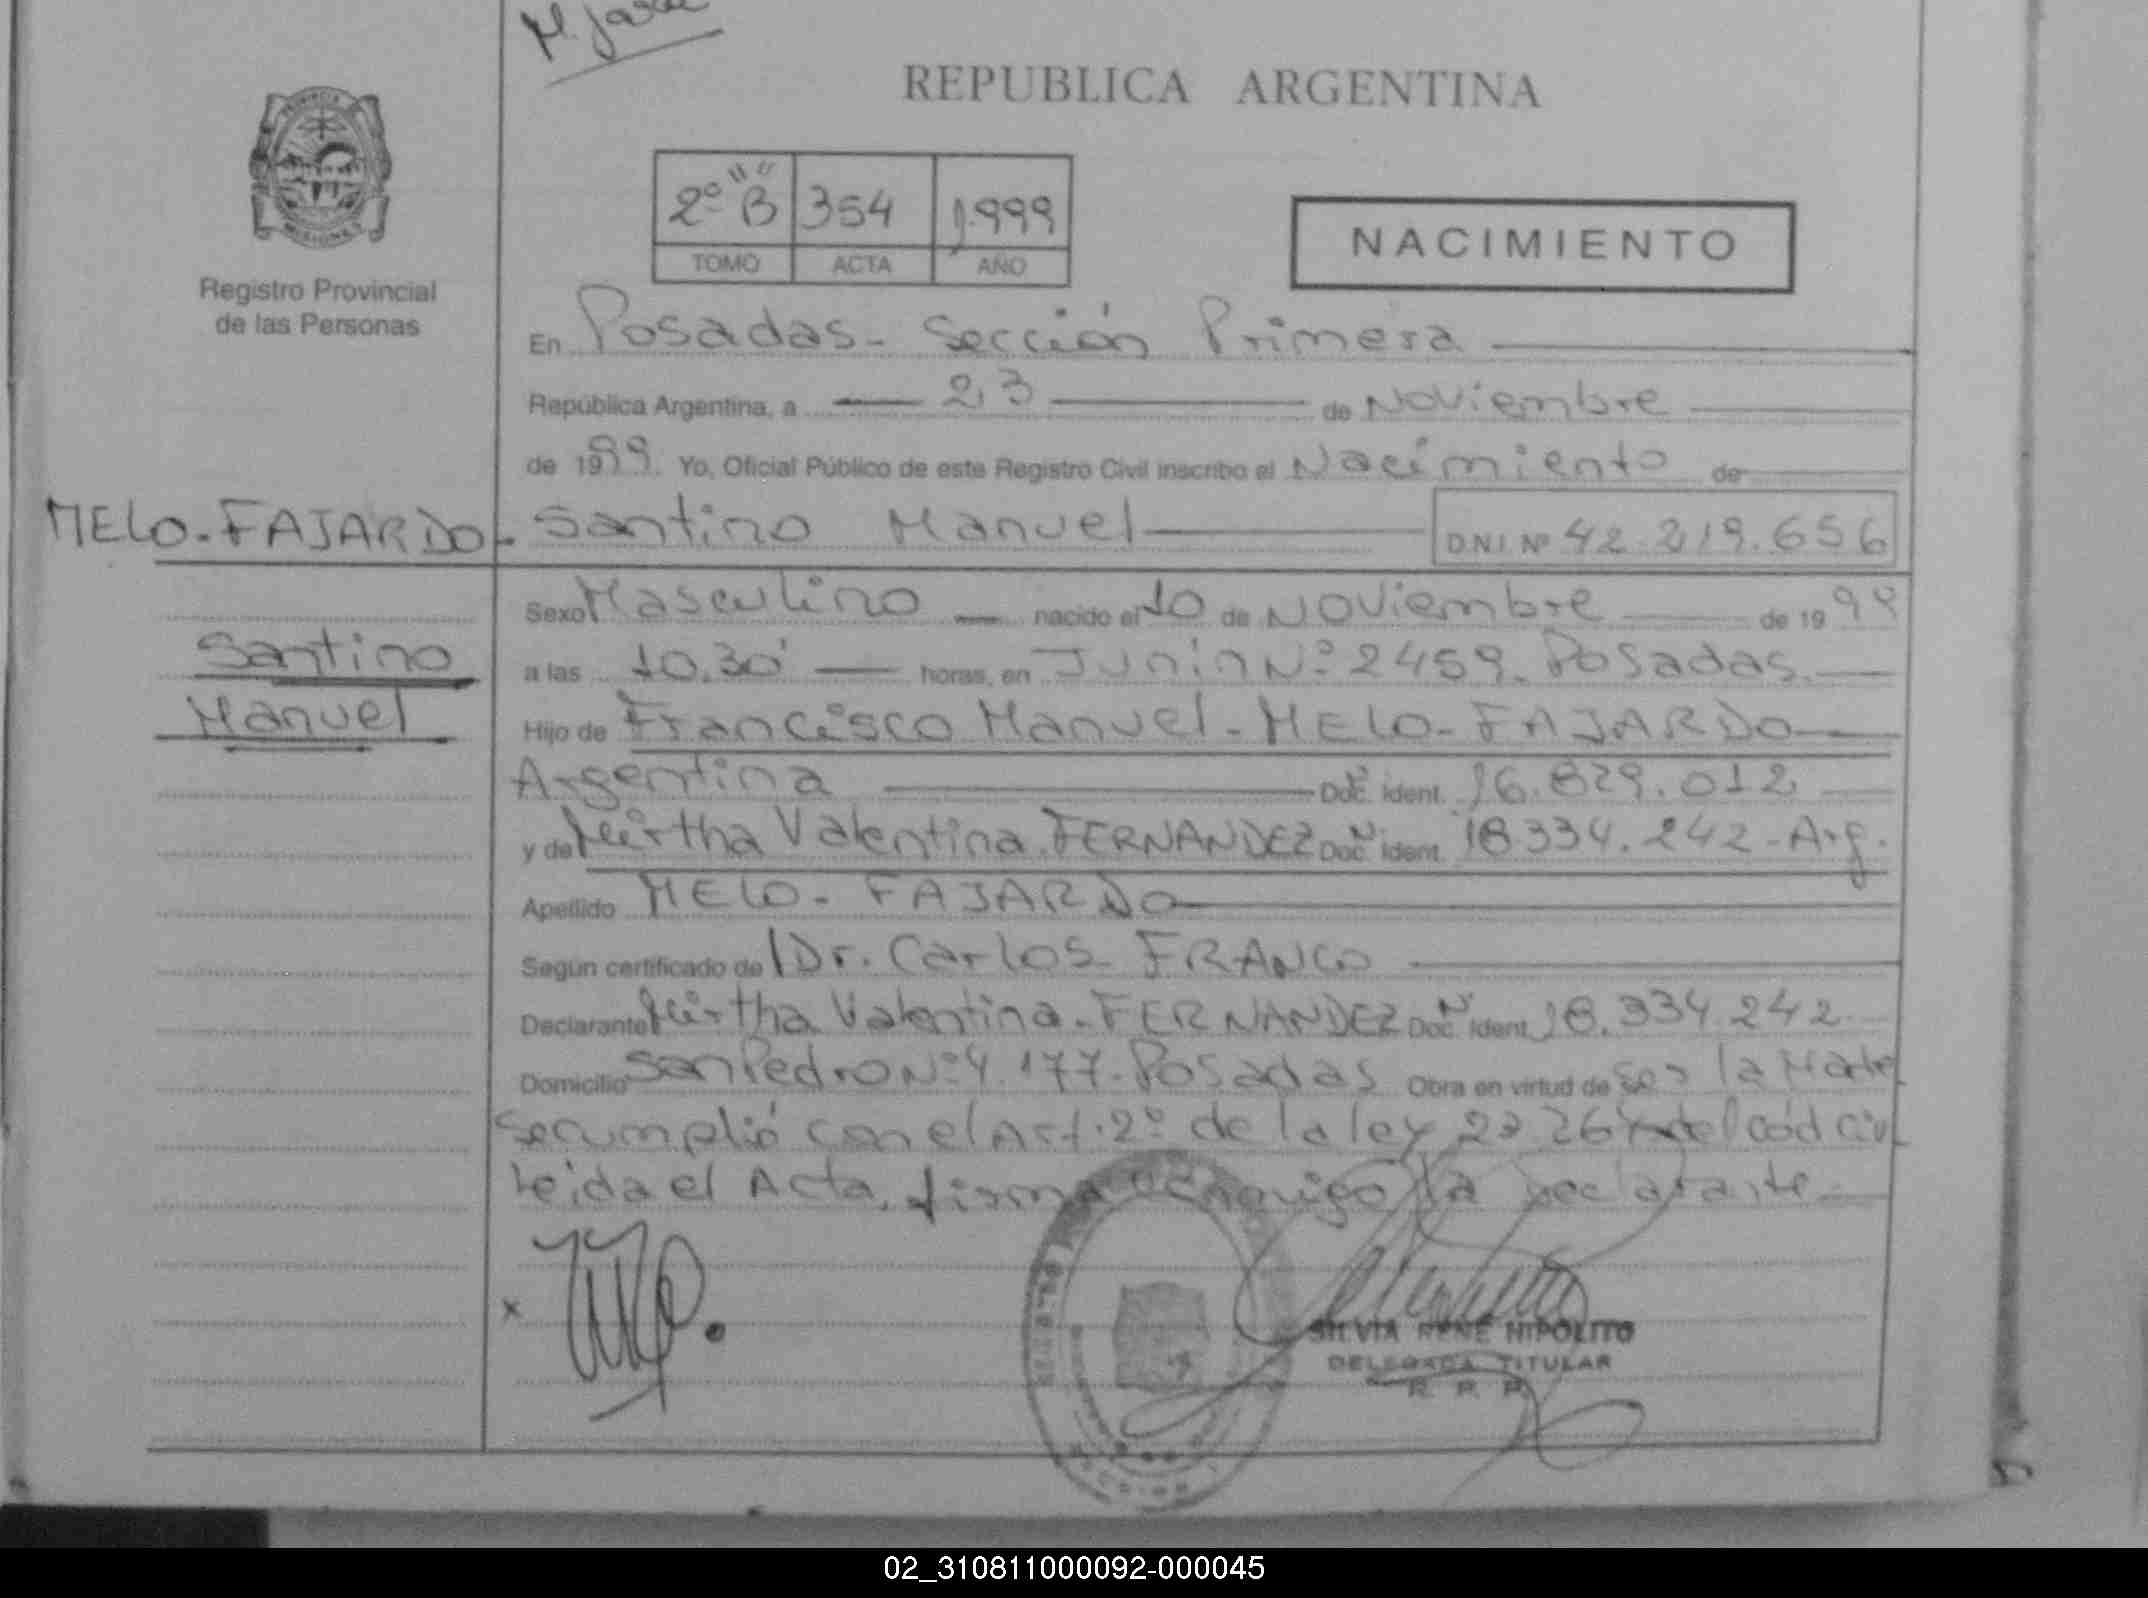 REPUBLICA ARGENTINA
PROVINCIA
MISIONES
Registro Provincial
de las Personas
2º "B" 354 1.999
TOMO ACTA AÑO
NACIMIENTO
En Posadas - Sección Primera
República Argentina, a 23 de Noviembre
de 1999. Yo, Oficial Público de este Registro Civil inscribo el Nacimiento de
MELO-FAJARDO - Santino Manuel D.N.I. Nº 42.219.656
Santino
Manuel
Sexo Masculino nacido el 10 de Noviembre de 1999
a las 10.30' horas, en Junín Nº 2459. Posadas.
Hijo de Francisco Manuel - MELO - FAJARDO
Argentina Doc. Nº ident. 16.829.012
y de Mirtha Valentina FERNANDEZ Doc. Nº ident. 18.334.242 - Arg.
Apellido MELO - FAJARDO
Según certificado de Dr. Carlos FRANCO
Declarante Mirtha Valentina - FERNANDEZ Doc. Nº ident. 18.334.242
Domicilio San Pedro Nº 4.177 - Posadas Obra en virtud de ser la Madre
Se cumplió con el Art. 2º de la ley del Cód Civil
Leida el Acta, firma conmigo la declarante
x
SILVIA RENE HIPOLITO
DELEGADA TITULAR
R. P. P.
02_310811000092-000045